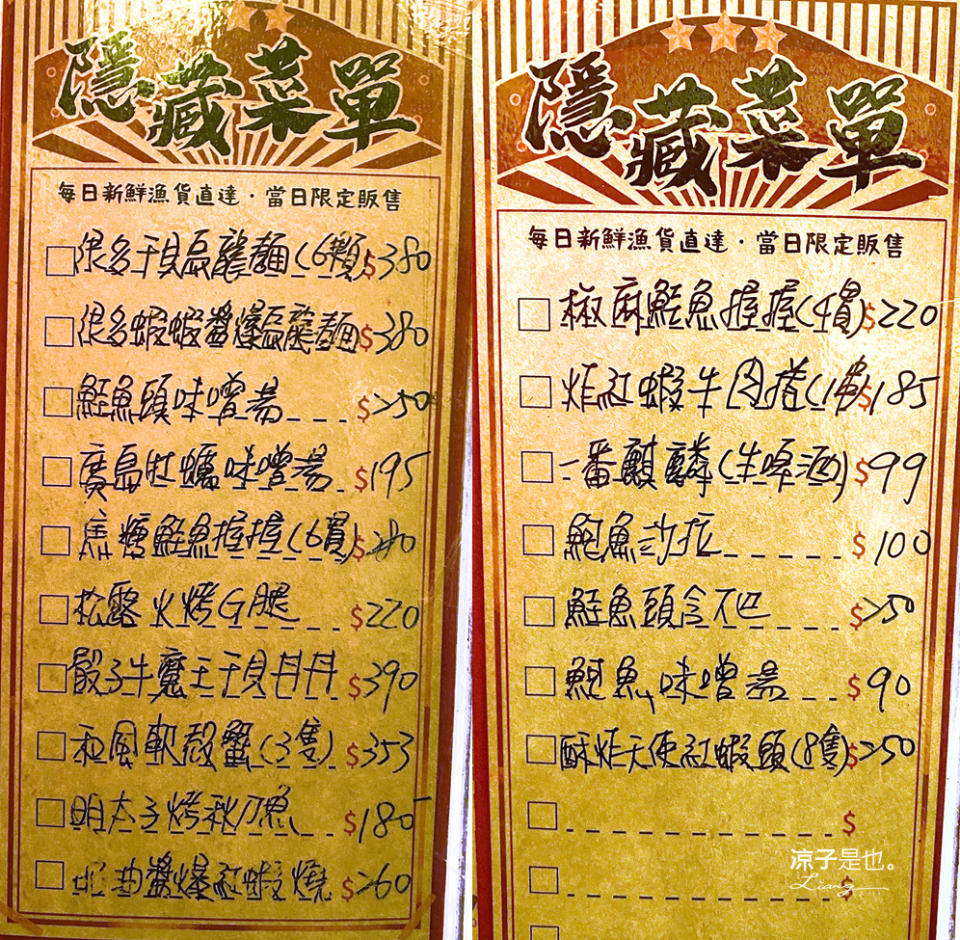 隱藏菜單
每日新鮮漁貨直達·當日限定販售
很多干貝烏龍麵(6顆)$380
很多蝦蝦醬爆烏龍麵$380
鮭魚頭味噌湯$250
廣島牡蠣味噌湯$195
焦糖鮭魚握握(6貫)$280
松露火烤G腿$220
骰子牛魔王干貝丼丹$390
和風軟殼蟹(3隻)$353
明太子烤秋刀魚$180
醬爆紅蝦燒$260
隱藏菜單
每日新鮮漁貨直達·當日限定販售
椒麻鮭魚握握(4貫)$220
炸紅蝦牛肉捲(1串)$185
一番麒麟(生啤酒)$99
鮑魚沙拉$100
鮭魚頭含不巴$250
鮑魚味噌湯$90
酥炸天使紅蝦頭(8隻)$250
$
$
涼子是也。
Liang